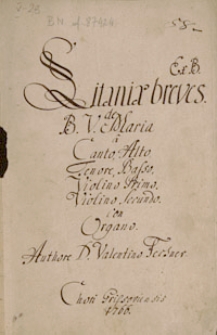 Ex B.
Litaniæ breves.
de
B. V. Maria
à
Canto, Alto
Tenore, Basso,
Violino Primo,
Violino Secundo.
con
Organo.
Authore D. Valentino
Chori
1766.